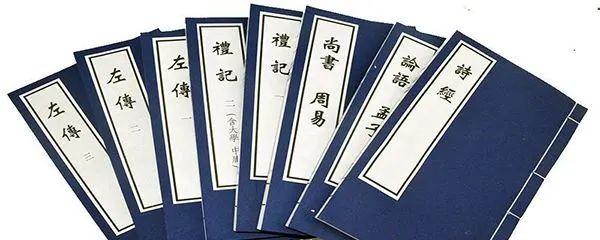 詩經
論語 孟子
尚書 周易
禮記 一
禮記 二(含大學 中庸)
左傳 一
左傳 二
左傳 三